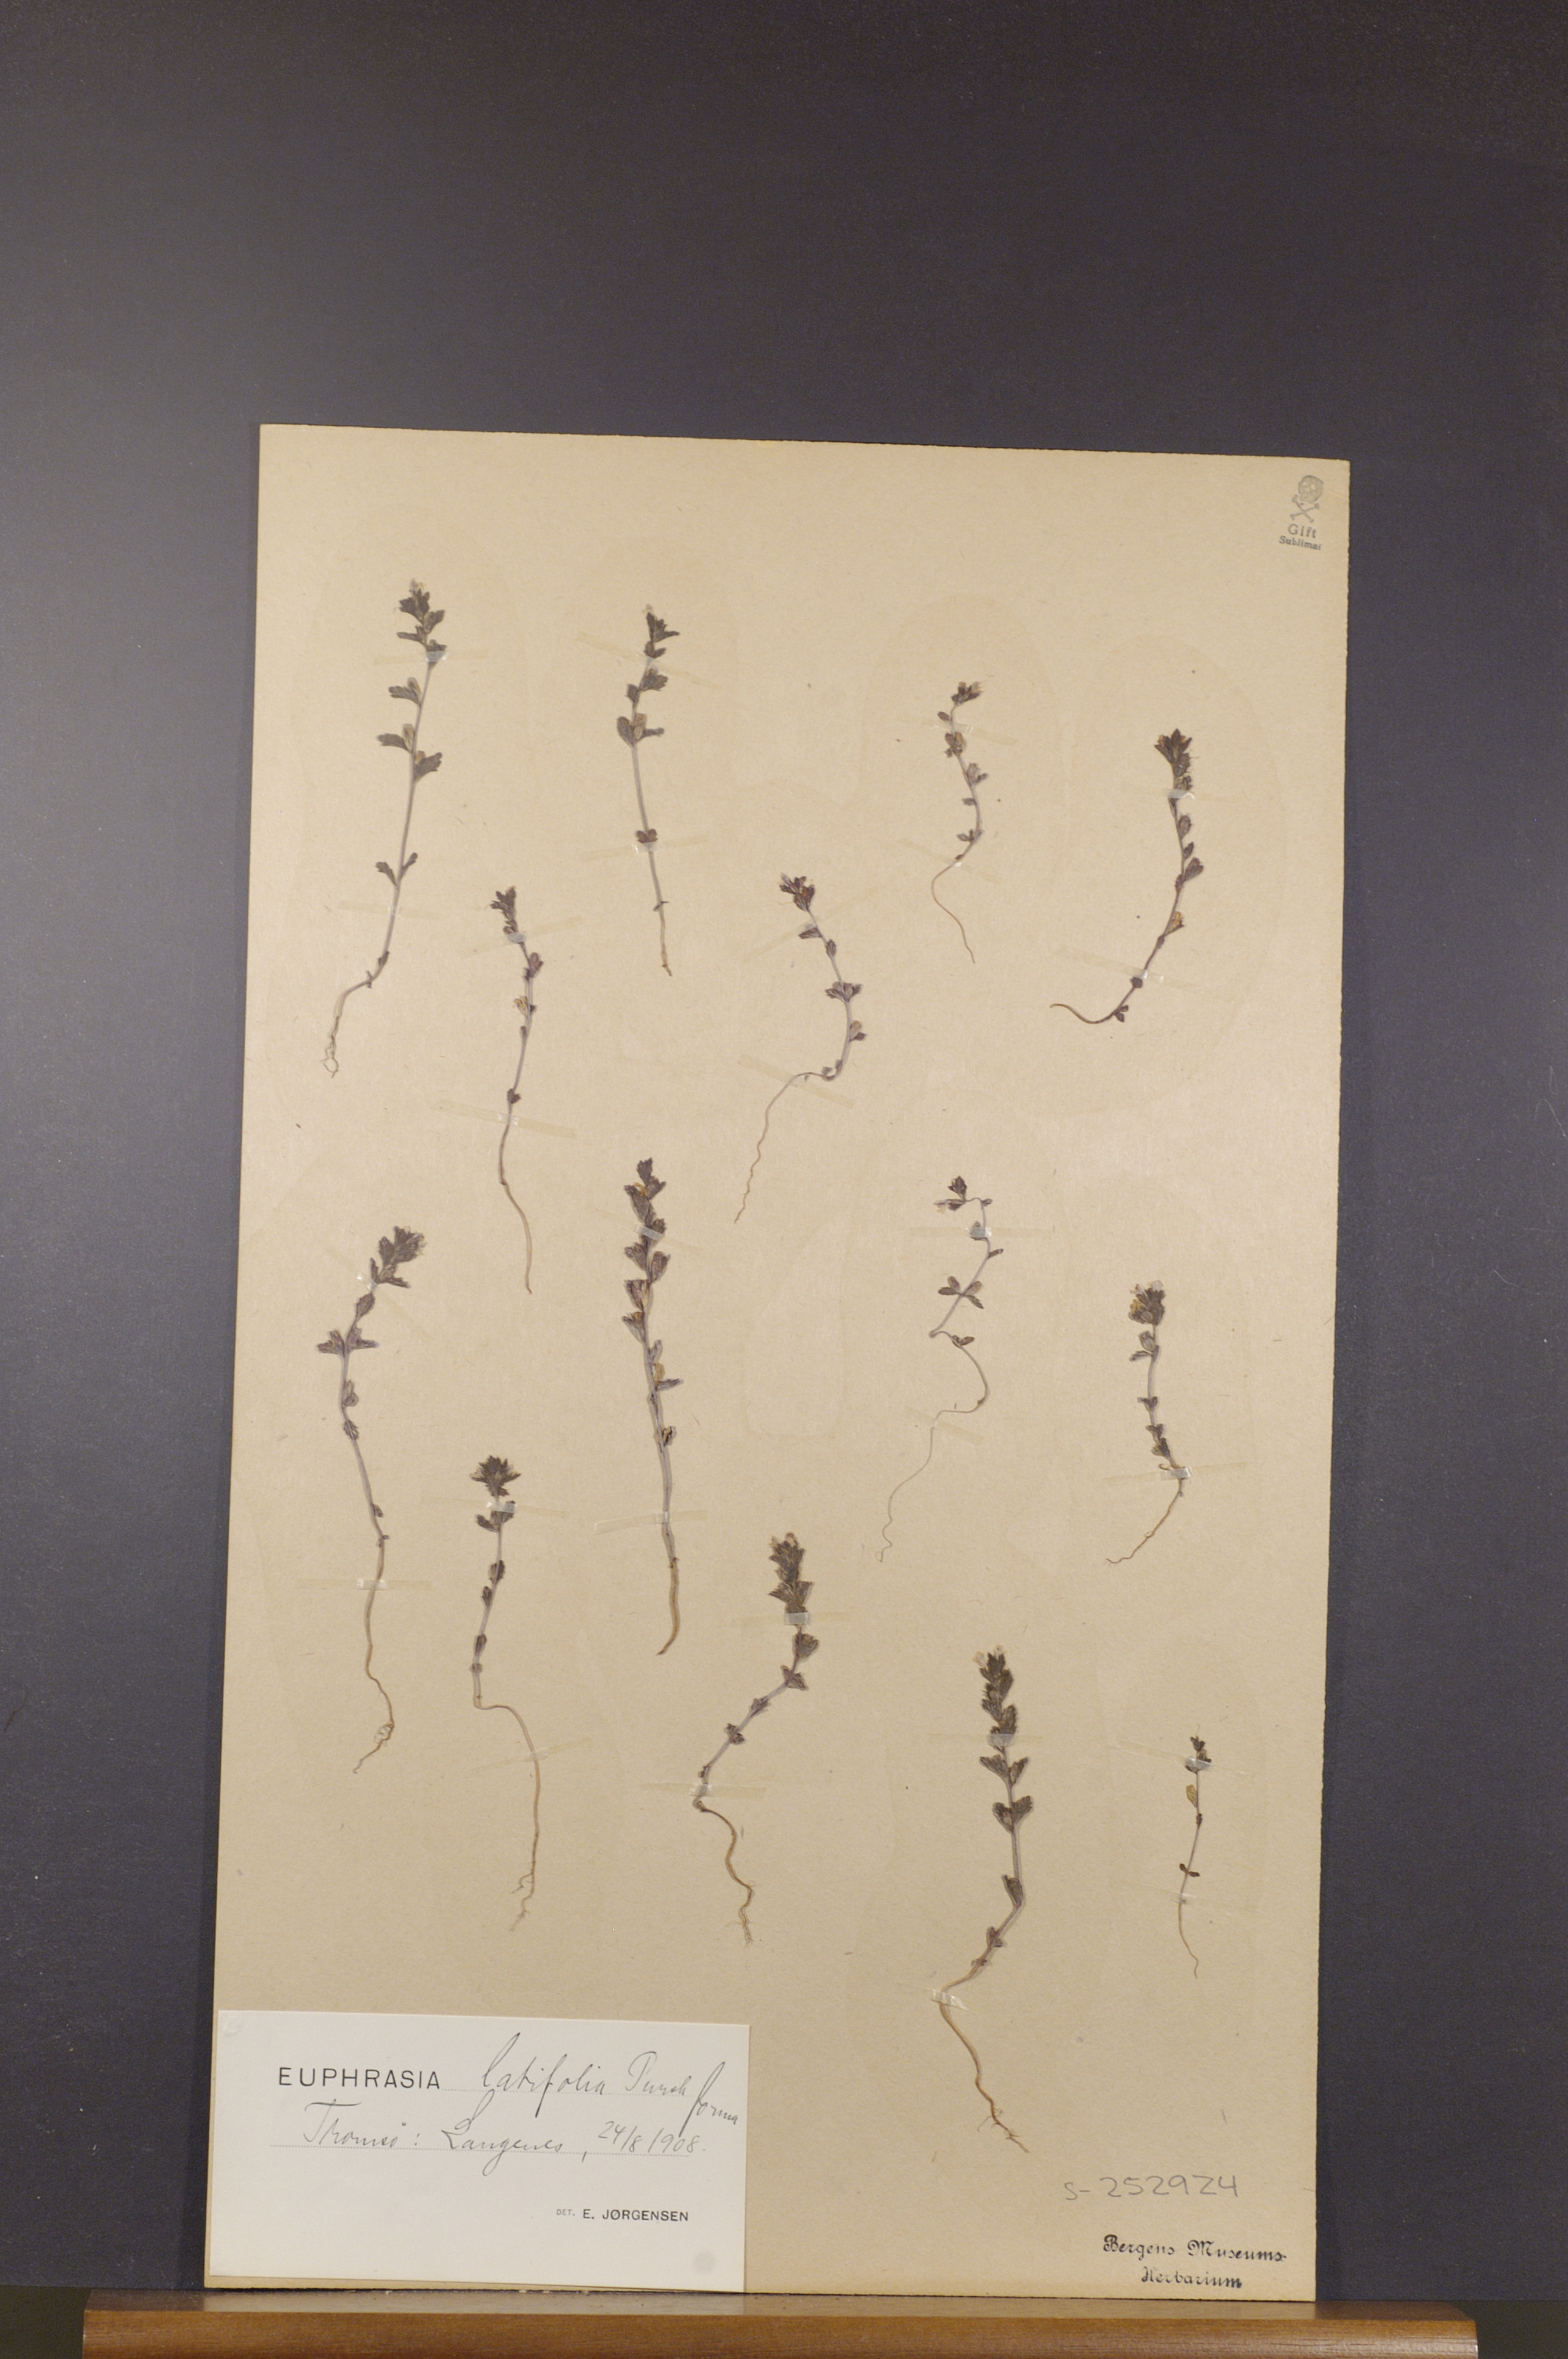 Gift
Sublimat
EUPHRASIA latifolia Pursh forma
Tromsø: Langenes, 24/8 1908.
DET. E. JØRGENSEN
S-252924
Bergens Museums
Herbarium